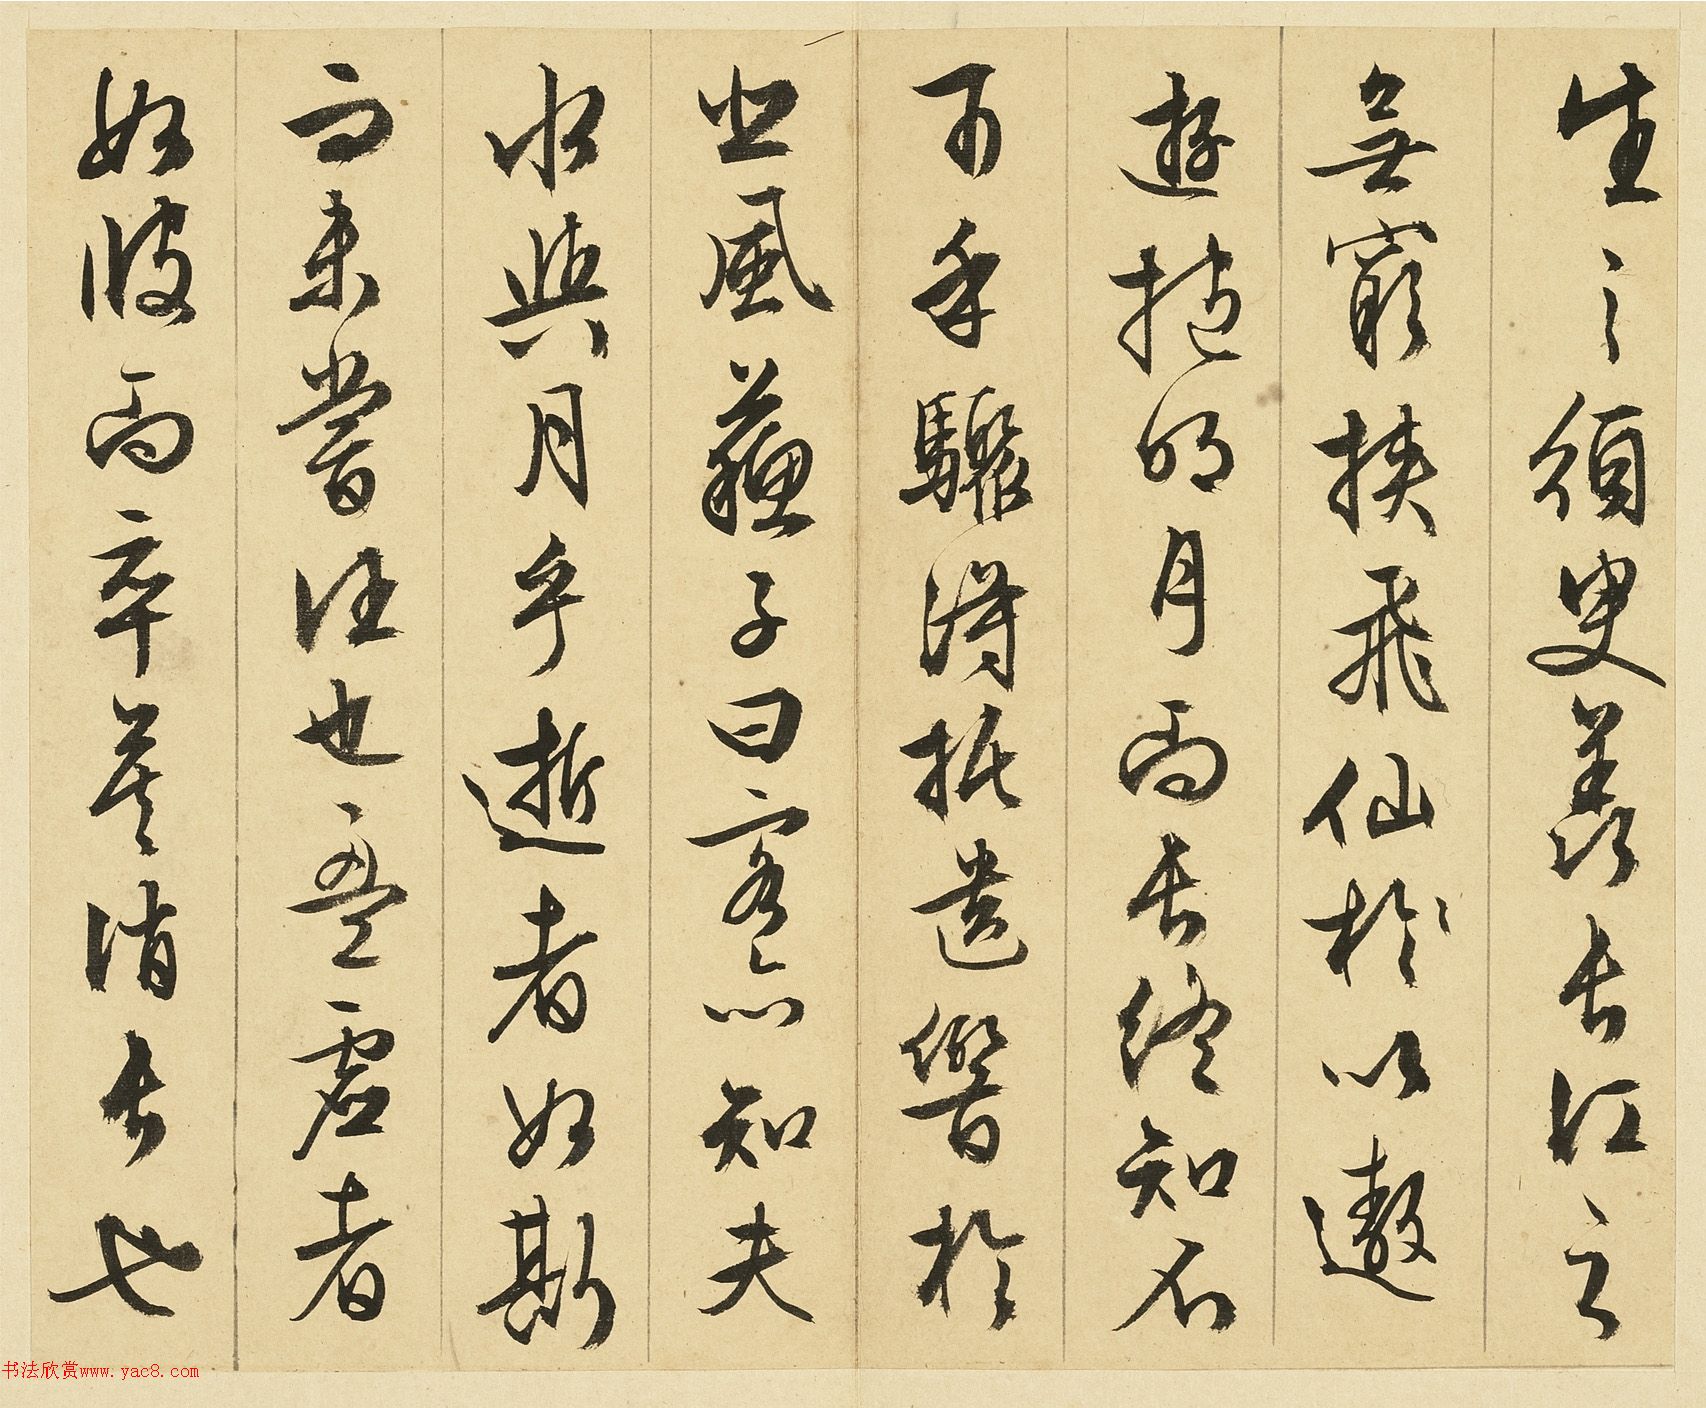 生之須臾羨長江之
無窮挾飛仙於以遨
遊抱明月而長終知不
可乎驟得托遺響於
悲風蘇子曰客亦知夫
水與月乎逝者如斯
而未嘗往也盈虛者
如彼而卒莫消長也
书法欣赏www.yac8.com